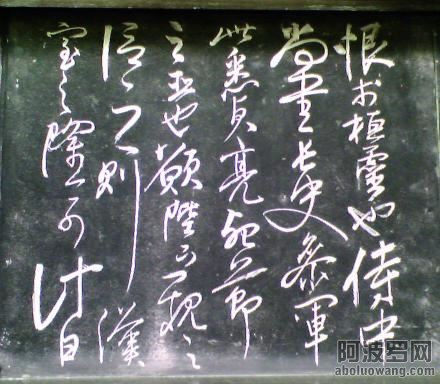 恨於桓靈也侍中
尚書長史參軍
此悉貞亮死節
之臣也願陛下親之
信之則漢
室之隆可計日
阿波罗网
aboluowang.com